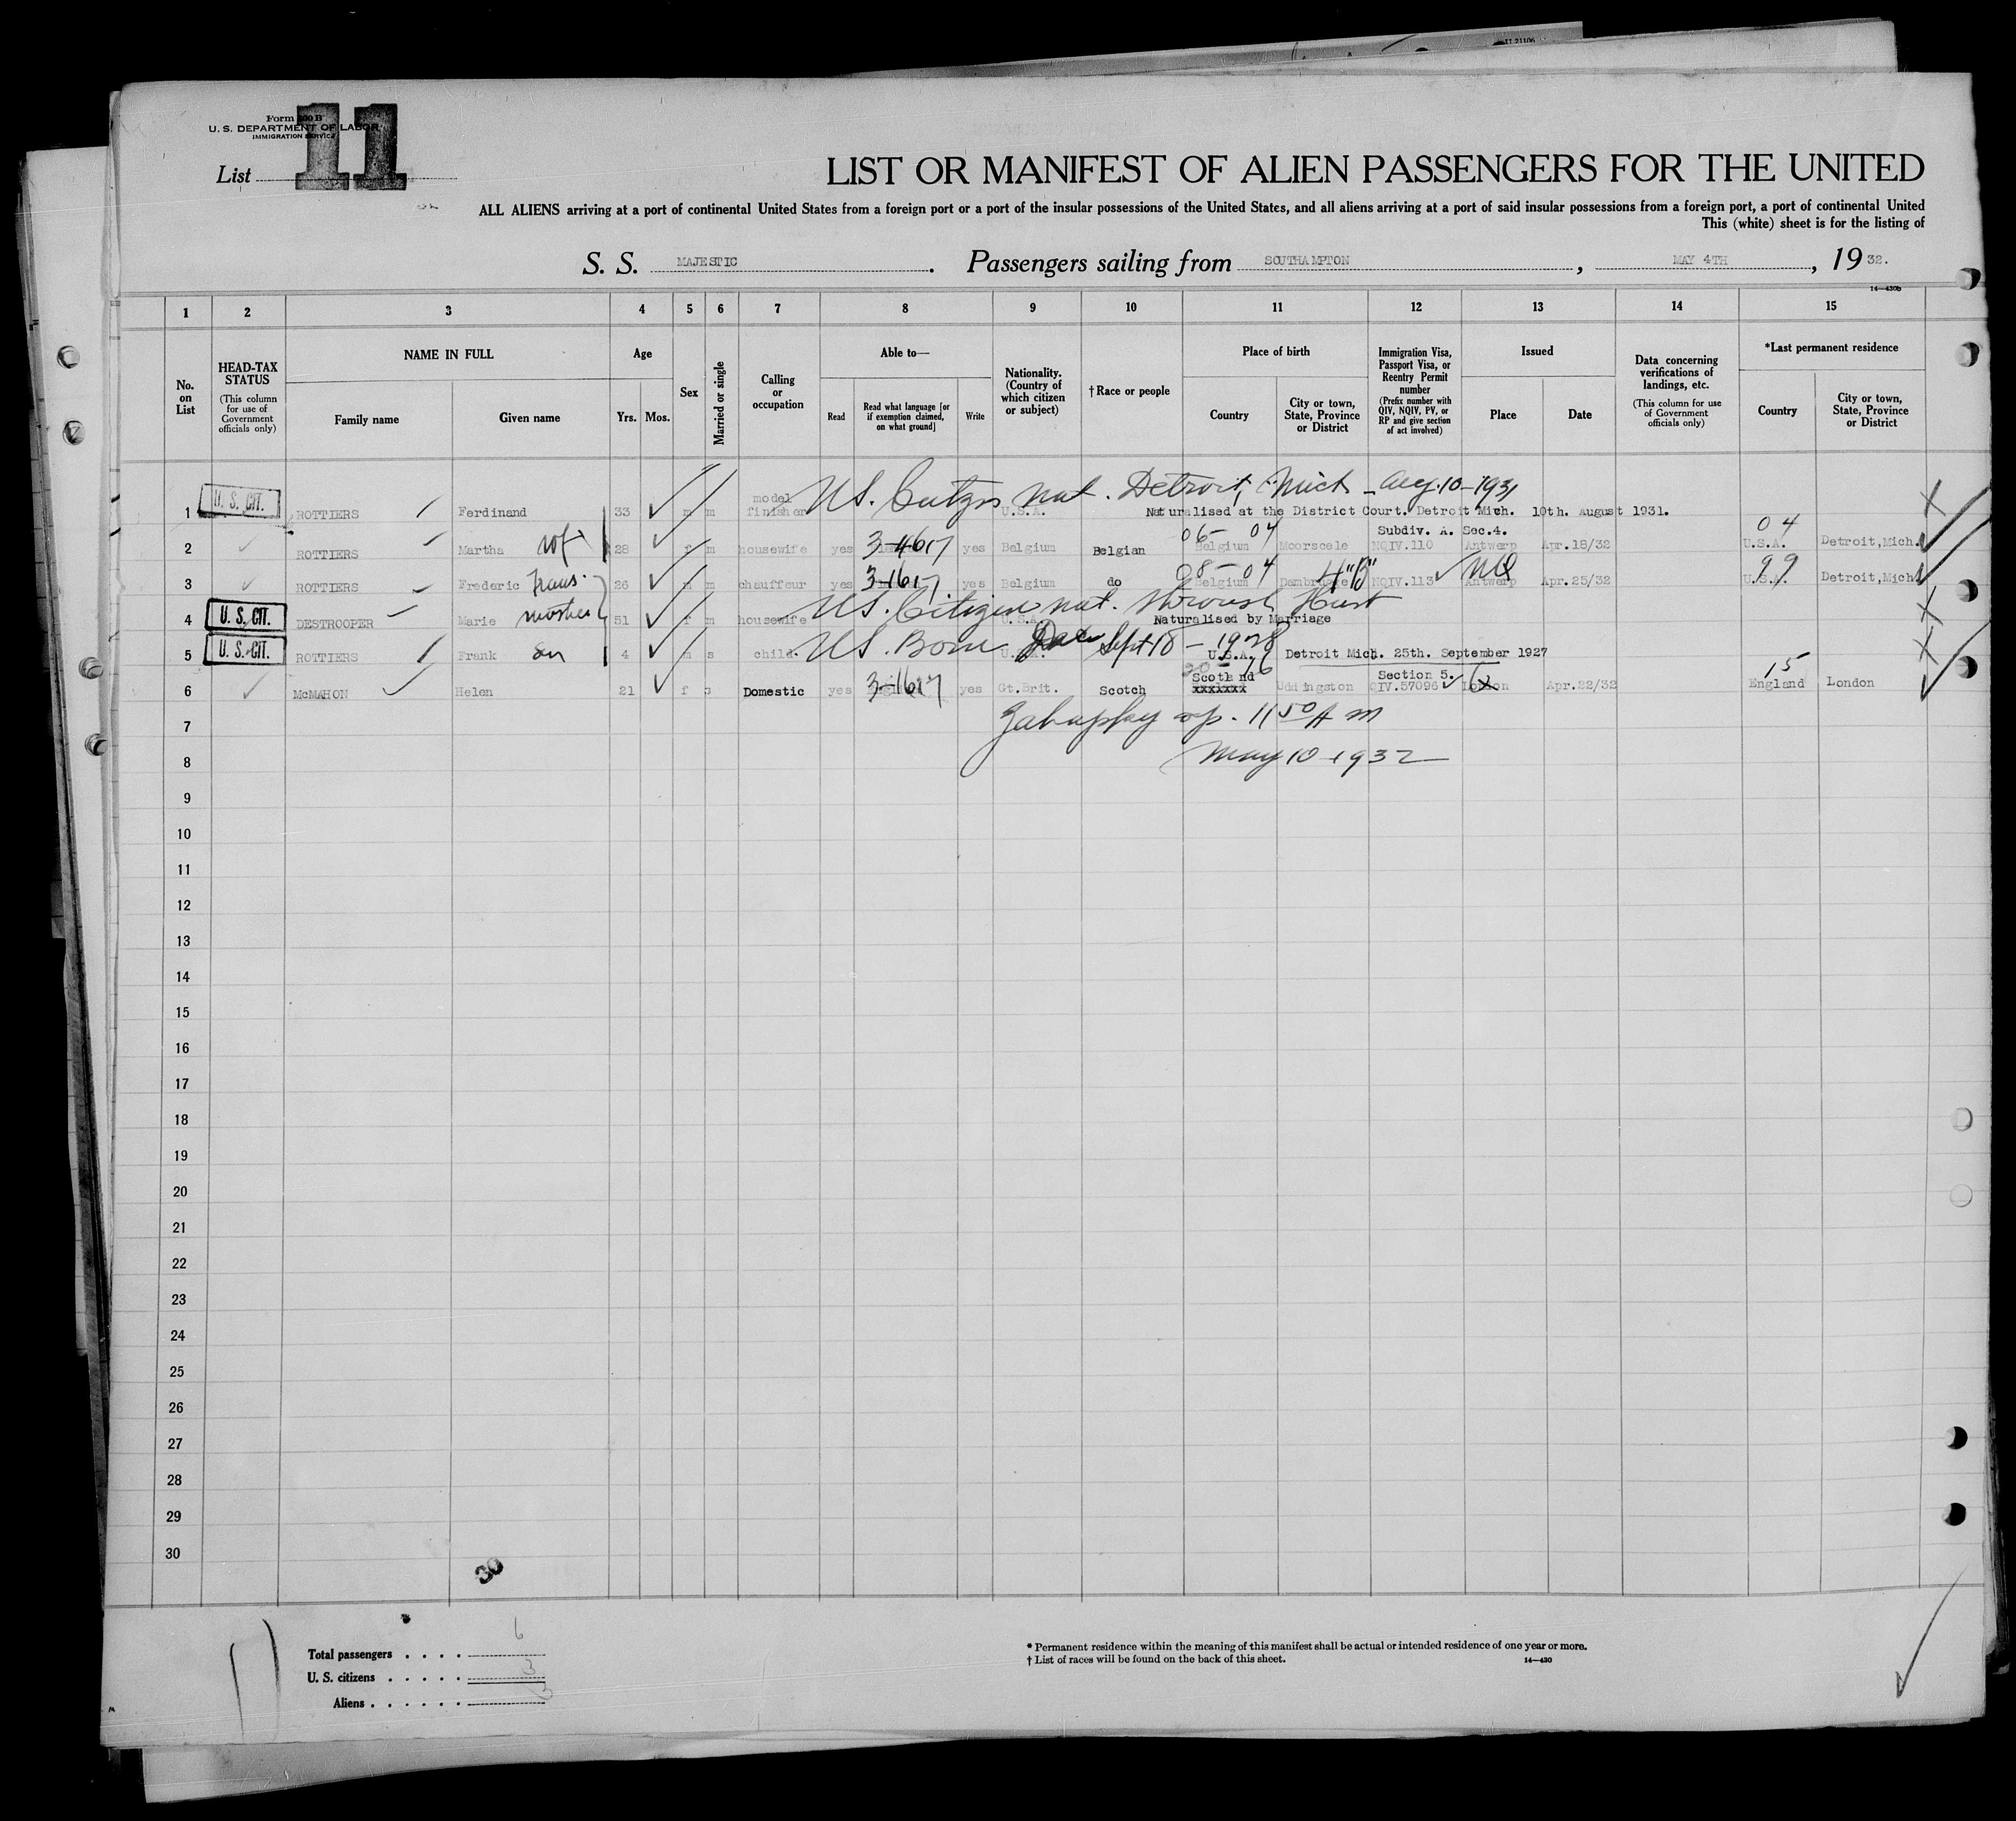 U 21106
Form 500 B
U. S. DEPARTMENT OF LABOR
IMMIGRATION SERVICE
11
List
LIST OR MANIFEST OF ALIEN PASSENGERS FOR THE UNITED
ALL ALIENS arriving at a port of continental United States from a foreign port or a port of the insular possessions of the United States, and all aliens arriving at a port of said insular possessions from a foreign port, a port of continental United
This (white) sheet is for the listing of
S. S. MAJESTIC. Passengers sailing from SOUTHAMPTON, MAY 4TH, 1932.
14—430b
1 2 3 4 5 6 7 8 9 10 11 12 13 14 15
No. on List
HEAD-TAX STATUS (This column for use of Government officials only)
NAME IN FULL
Family name
Given name
Age
Yrs. Mos.
Sex
Married or single
Calling or occupation
Able to—
Read
Read what language [or if exemption claimed, on what ground]
Write
Nationality. (Country of which citizen or subject)
† Race or people
Place of birth
Country
City or town, State, Province or District
Immigration Visa, Passport Visa, or Reentry Permit number (Prefix number with QIV, NQIV, PV, or RP and give section of act involved)
Issued
Place
Date
Data concerning verifications of landings, etc. (This column for use of Government officials only)
*Last permanent residence
Country
City or town, State, Province or District
US. Citzn nat. Detroit, Mich - Aug. 10-1931
1 U. S. CIT. ROTTIERS Ferdinand 33 m m model finisher U.S.A. Naturalised at the District Court. Detroit Mich. 10th. August 1931.
06- 04 Subdiv. A. Sec.4. 04
2 ROTTIERS Martha wf 28 f m housewife yes 3-1617 yes Belgium Belgian Belgium Moorscele NQIV.110 Antwerp Apr.18/32 U.S.A. Detroit,Mich.
08-04 4"B" NQ 99
3 ROTTIERS Frederic 26 m m chauffeur yes 3-1617 yes Belgium do Belgium Dambrugge NQIV.113 Antwerp Apr.25/32 U.S.A. Detroit,Mich.
US. Citizen nat. through Husb
4 U. S. CIT. DESTROOPER Marie mother 51 f m housewife U.S.A. Naturalised by Marriage
US. Born Sept 18 - 1928
5 U. S. CIT. ROTTIERS Frank son 4 m s child. U.S.A. U.S.A. Detroit Mich. 25th. September 1927
20-16 Section 5. 15
6 McMAHON Helen 21 f s Domestic yes 3-1617 yes Gt.Brit. Scotch Scotland xxxxxxx Uddingston QIV.57096 London Apr.22/32 England London
7 11 50 A m
8 May 10 1932
9
10
11
12
13
14
15
16
17
18
19
20
21
22
23
24
25
26
27
28
29
30
30
Total passengers . . . . 6
U. S. citizens . . . . . 3
Aliens . . . . . . 3
* Permanent residence within the meaning of this manifest shall be actual or intended residence of one year or more.
† List of races will be found on the back of this sheet.
14—430